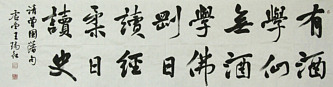 有酒
學仙
無酒
學佛
剛日
讀經
柔日
讀史
清曾國藩句